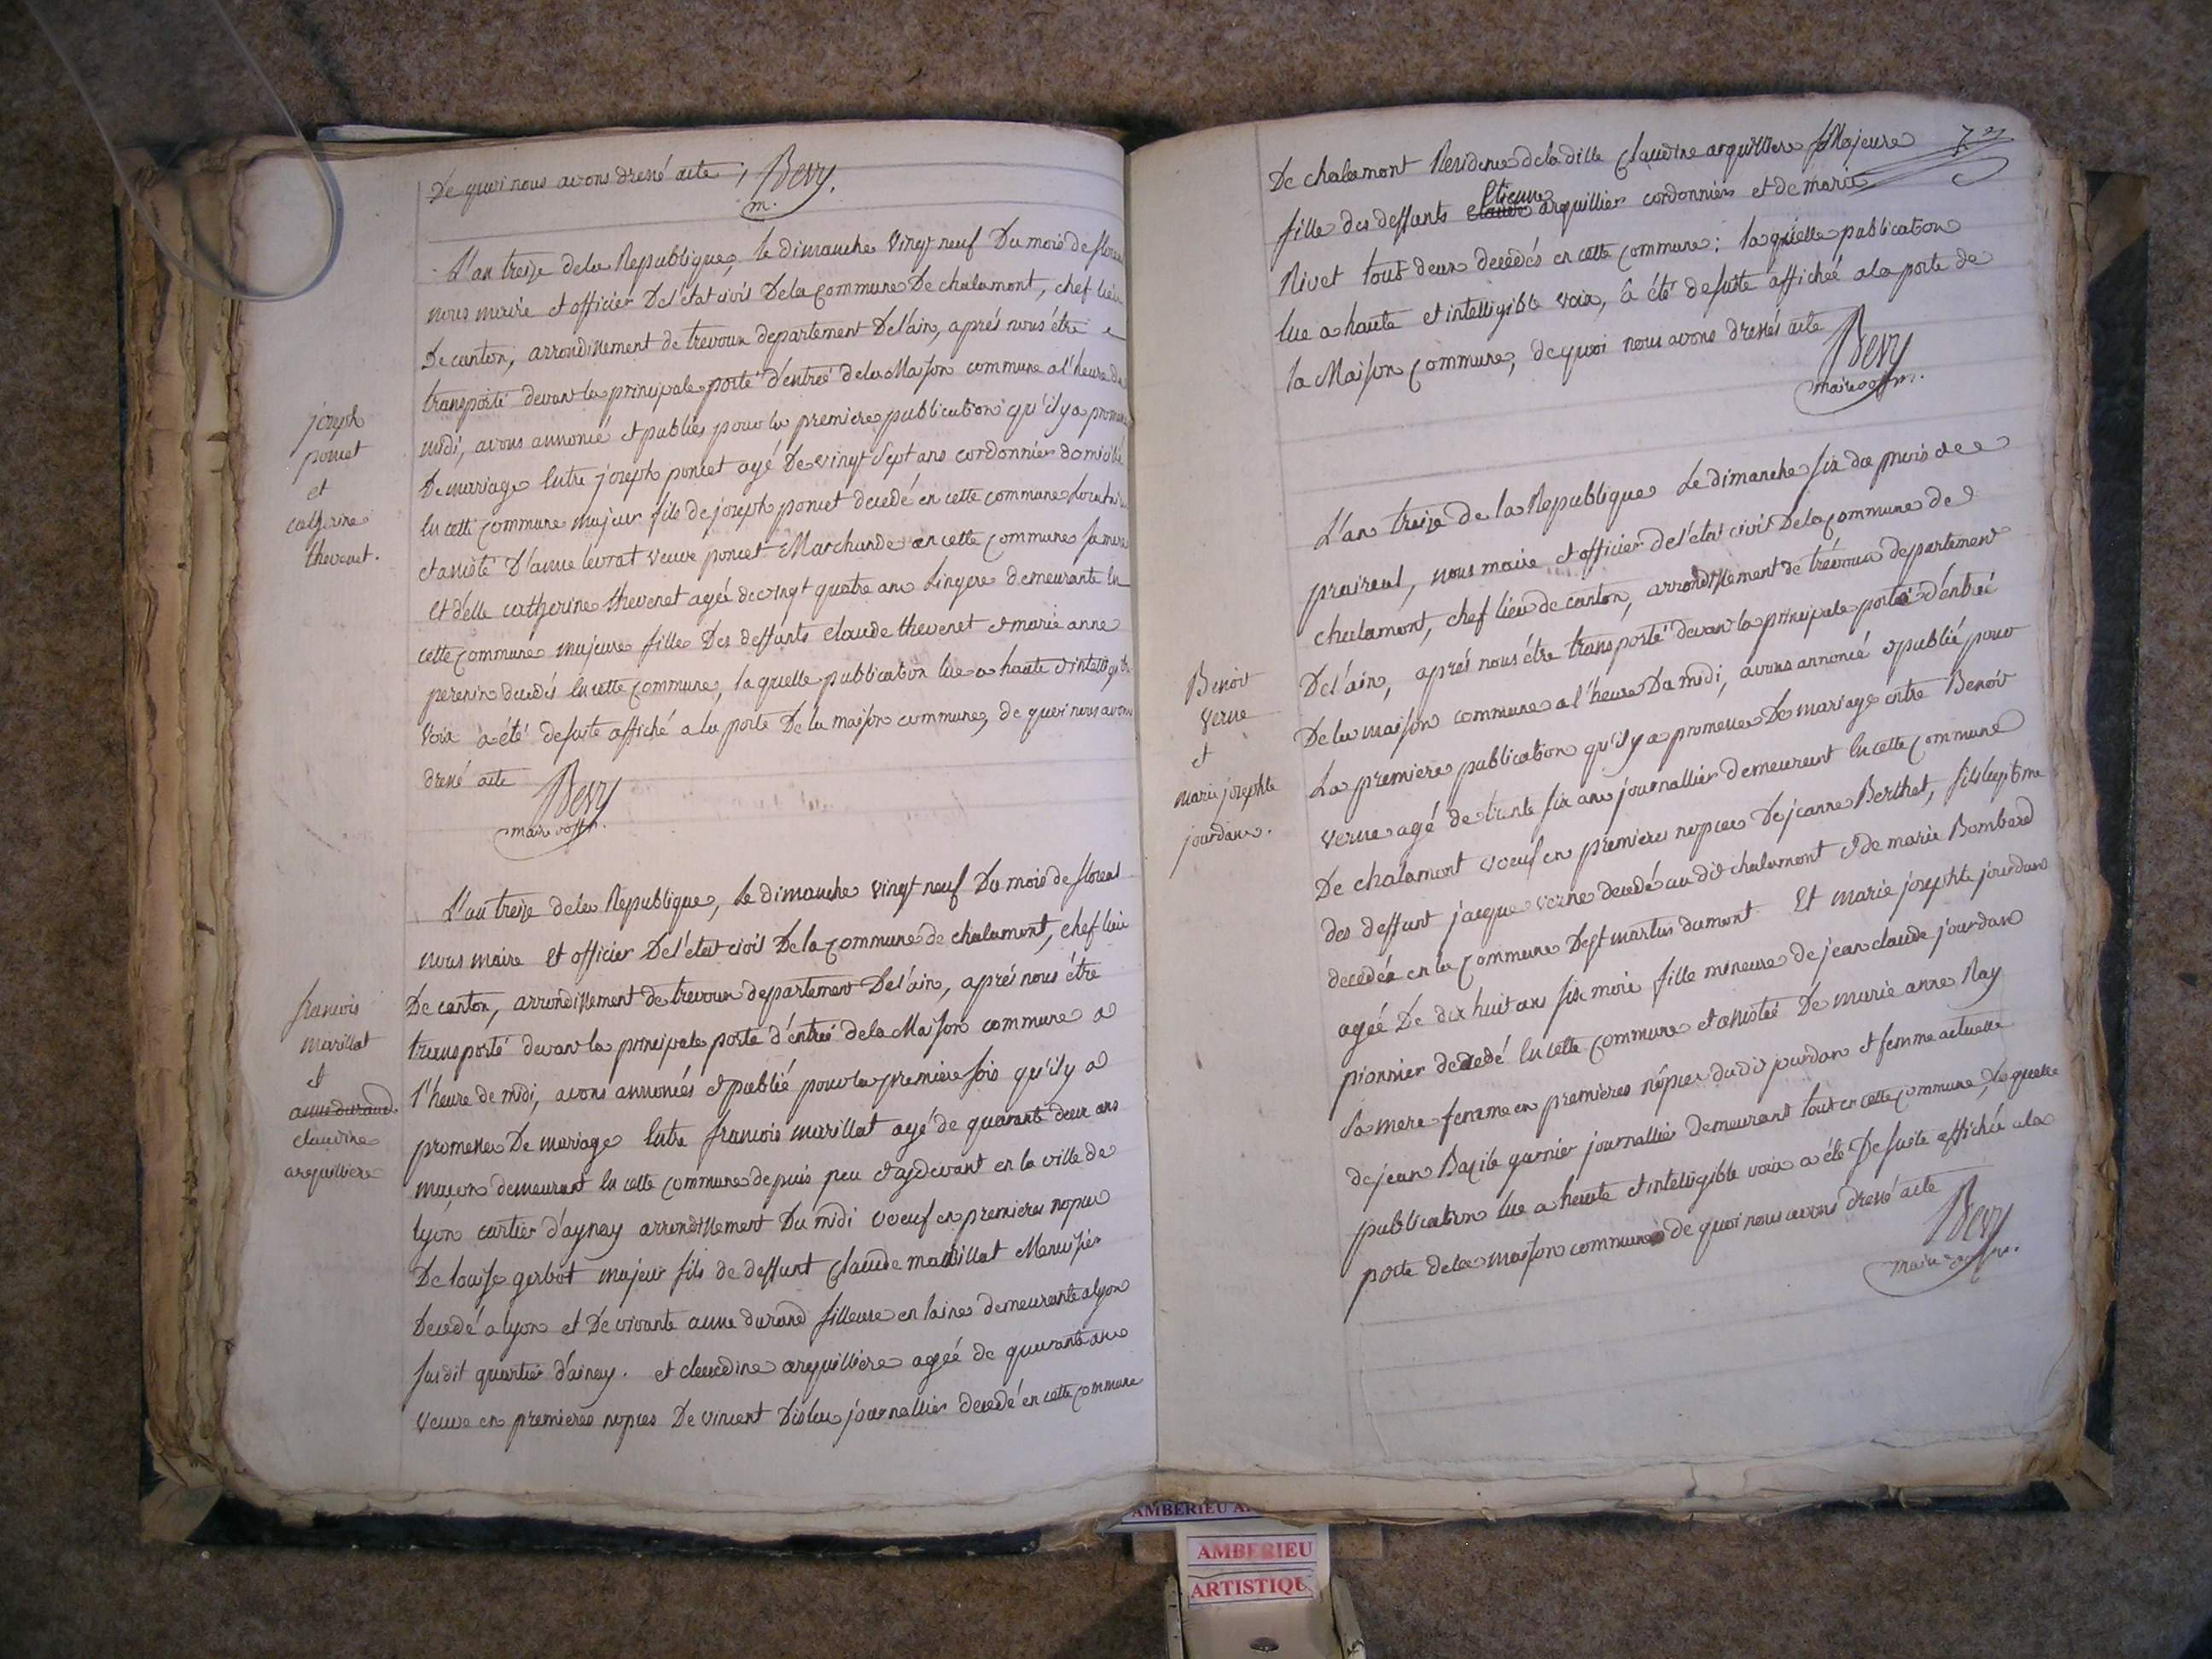 De quoi nous avons dressé acte / Bevy.
m.
L'an treize dela Republique, le dimanche vingt neuf Du mois de
nous maire et officier De l'état civil Dela Commune De chalamont, chef lieu
De canton, arrondissement de trevoux departement Del'ain, aprés nous être
transporté devant la principale porte d'entreé dela Maison commune a l'heure de
midi, avons annoncé et publiés pour la premiere publication qu'il y a
De mariage Entre joseph poncet agé De vingt Sept ans cordonnier domicilié
En cette Commune majeur fils de joseph poncet decedé en cette commune
et assisté D'anne levrat veuve poncet Marchande en cette Commune sa mere
Et d'elle catherine thevenet agée de vingt quatre ans Lingere demeurante En
cette Commune majeure fille Des deffunts Claude thevenet et marie anne
perenin decedés En cette Commune, la quelle publication lue a haute et
Voix a été desuite affiché a la porte De la maison commune, de quoi nous avons
dressé acte Bevy
maire
joseph
poncet
et
catherine
thevenet.
L'an treize dela Republique, Le dimanche vingt neuf Du mois de floreal
nous maire Et officier De l'etat civil De la Commune de chalamont, chef lieu
De canton, arrondissement de trevoux departement Del'ain, aprés nous être
transporté devant la principale porte d'éntreé dela Maison commune a
l'heure de midi, avons annoncés et publié pour la premiere fois qu'il y a
promesse De mariage Entre francois marillat agé de quarante deux ans
maçon demeurant En cette commune depuis peu et aydevant en la ville de
lyon cartier d'aynay arrondissement Du midi voeuf en premieres nopces
De louise gerbot majeur fils de deffunt Claude marillat Menuisier
Decedé a lyon et De vivante anne durand filleuse en laine demeurante a lyon
susdit quartier d'ainay. et claudine arquilliere ageé de quarante ans
veuve en premieres nopces De vincent journallier decedé en cette commune
francois
marillat
et
anne durand.
claudine
arquilliere
7
De chalamont Residence dela ditte Claudine arquilliere Majeure
Etienne
fille des deffunts claude arquillier cordonnier et de marie
Nivet tous deux decédés en cette Commune; laquelle publication
lue a haute et intelligible voix, a été desuite affichéé a la porte de
la Maison Commune, de quoi nous avons dressés acte Bevy
maire
L'an treize de la Republique Le dimanche six du mois de
praireal, nous maire et officier de l'état civil Dela Commune de
chalamont, chef lieu de canton, arrondissement de trévoux departement
Del'ain, aprés nous être transporté devant la principale porte d'éntreé
Dela maison commune a l'heure Da midi, avons annoncé et publié pour
La premiere publication qu'il y a promesse De mariage entre Benoit
verne agé de trente six ans journallier demeurent En cette Commune
De chalamont voeuf en premieres nopces De jeanne Berthet, fils legitime
des deffunt jacque verne decedé au dit chalamont et de marie Bombard
decedée en la Commune De st martin dumont. Et marie josephte jourdan
ageé De dix huit ans six mois fille mineure de jean claude jourdan
pionnier decedé En cette Commune et assisteé De marie anne Ray
Sa mere femme en premieres nopces dudit jourdan et femme actuelle
de jean Bazile garnier journallier demeurant tout en cette commune, Laquelle
publication lue a haute et intelligible voix a été De suite affichée a la
porte dela maison commune de quoi nous avons dressé acte Bevy
maire
Benoit
verne
et
marie josephte
jourdan.
AMBERIEU
AMBERIEU
ARTISTIQU